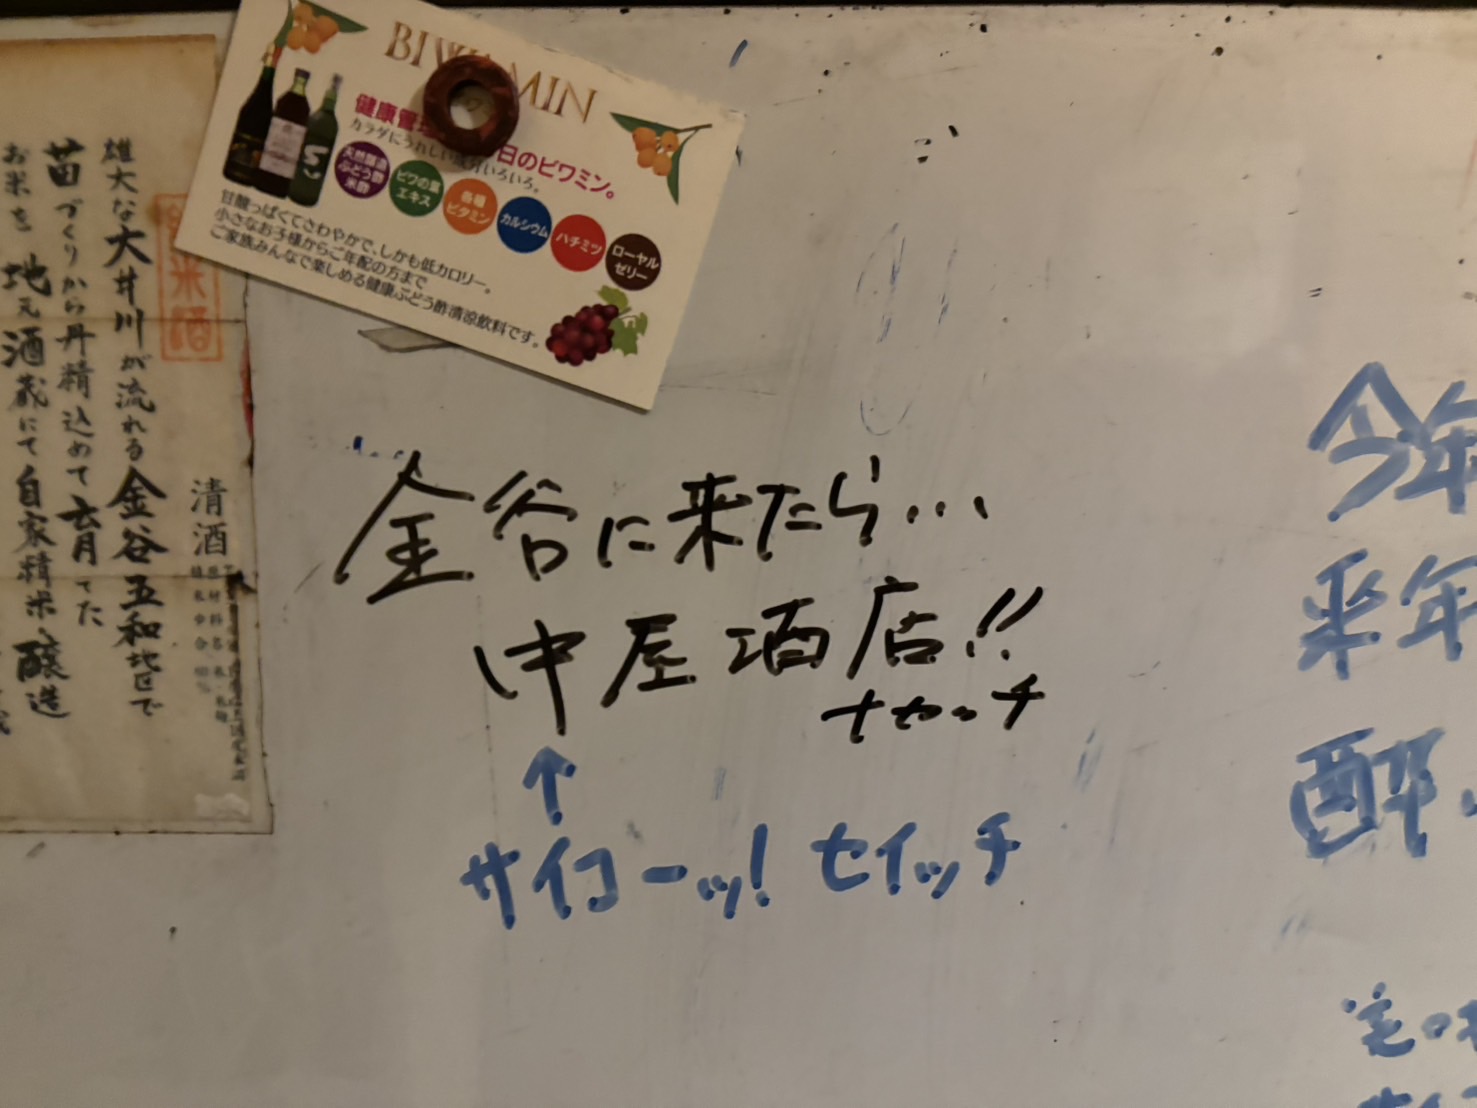 BIWAMIN
健康管理
日のビワミン。
カラダにうれしい成分いろいろ。
天然醸造
ぶどう酢
米酢
ビワの葉
エキス
各種
ビタミン
カルシウム
ハチミツ
ローヤル
ゼリー
甘酸っぱくてさわやかで、しかも低カロリー。
小さなお子様からご年配の方まで
ご家族みんなで楽しめる健康ぶどう酢清涼飲料です。
清酒
雄大な大井川が流れる金谷五和地区で
苗づくりから丹精込めて育てた
お米を地元酒蔵にて自家精米、醸造
米酒
金谷に来たら…
中屋酒店!!
ナセッチ
↑
サイコーッ! セイッチ
今年
来年
酔
美味